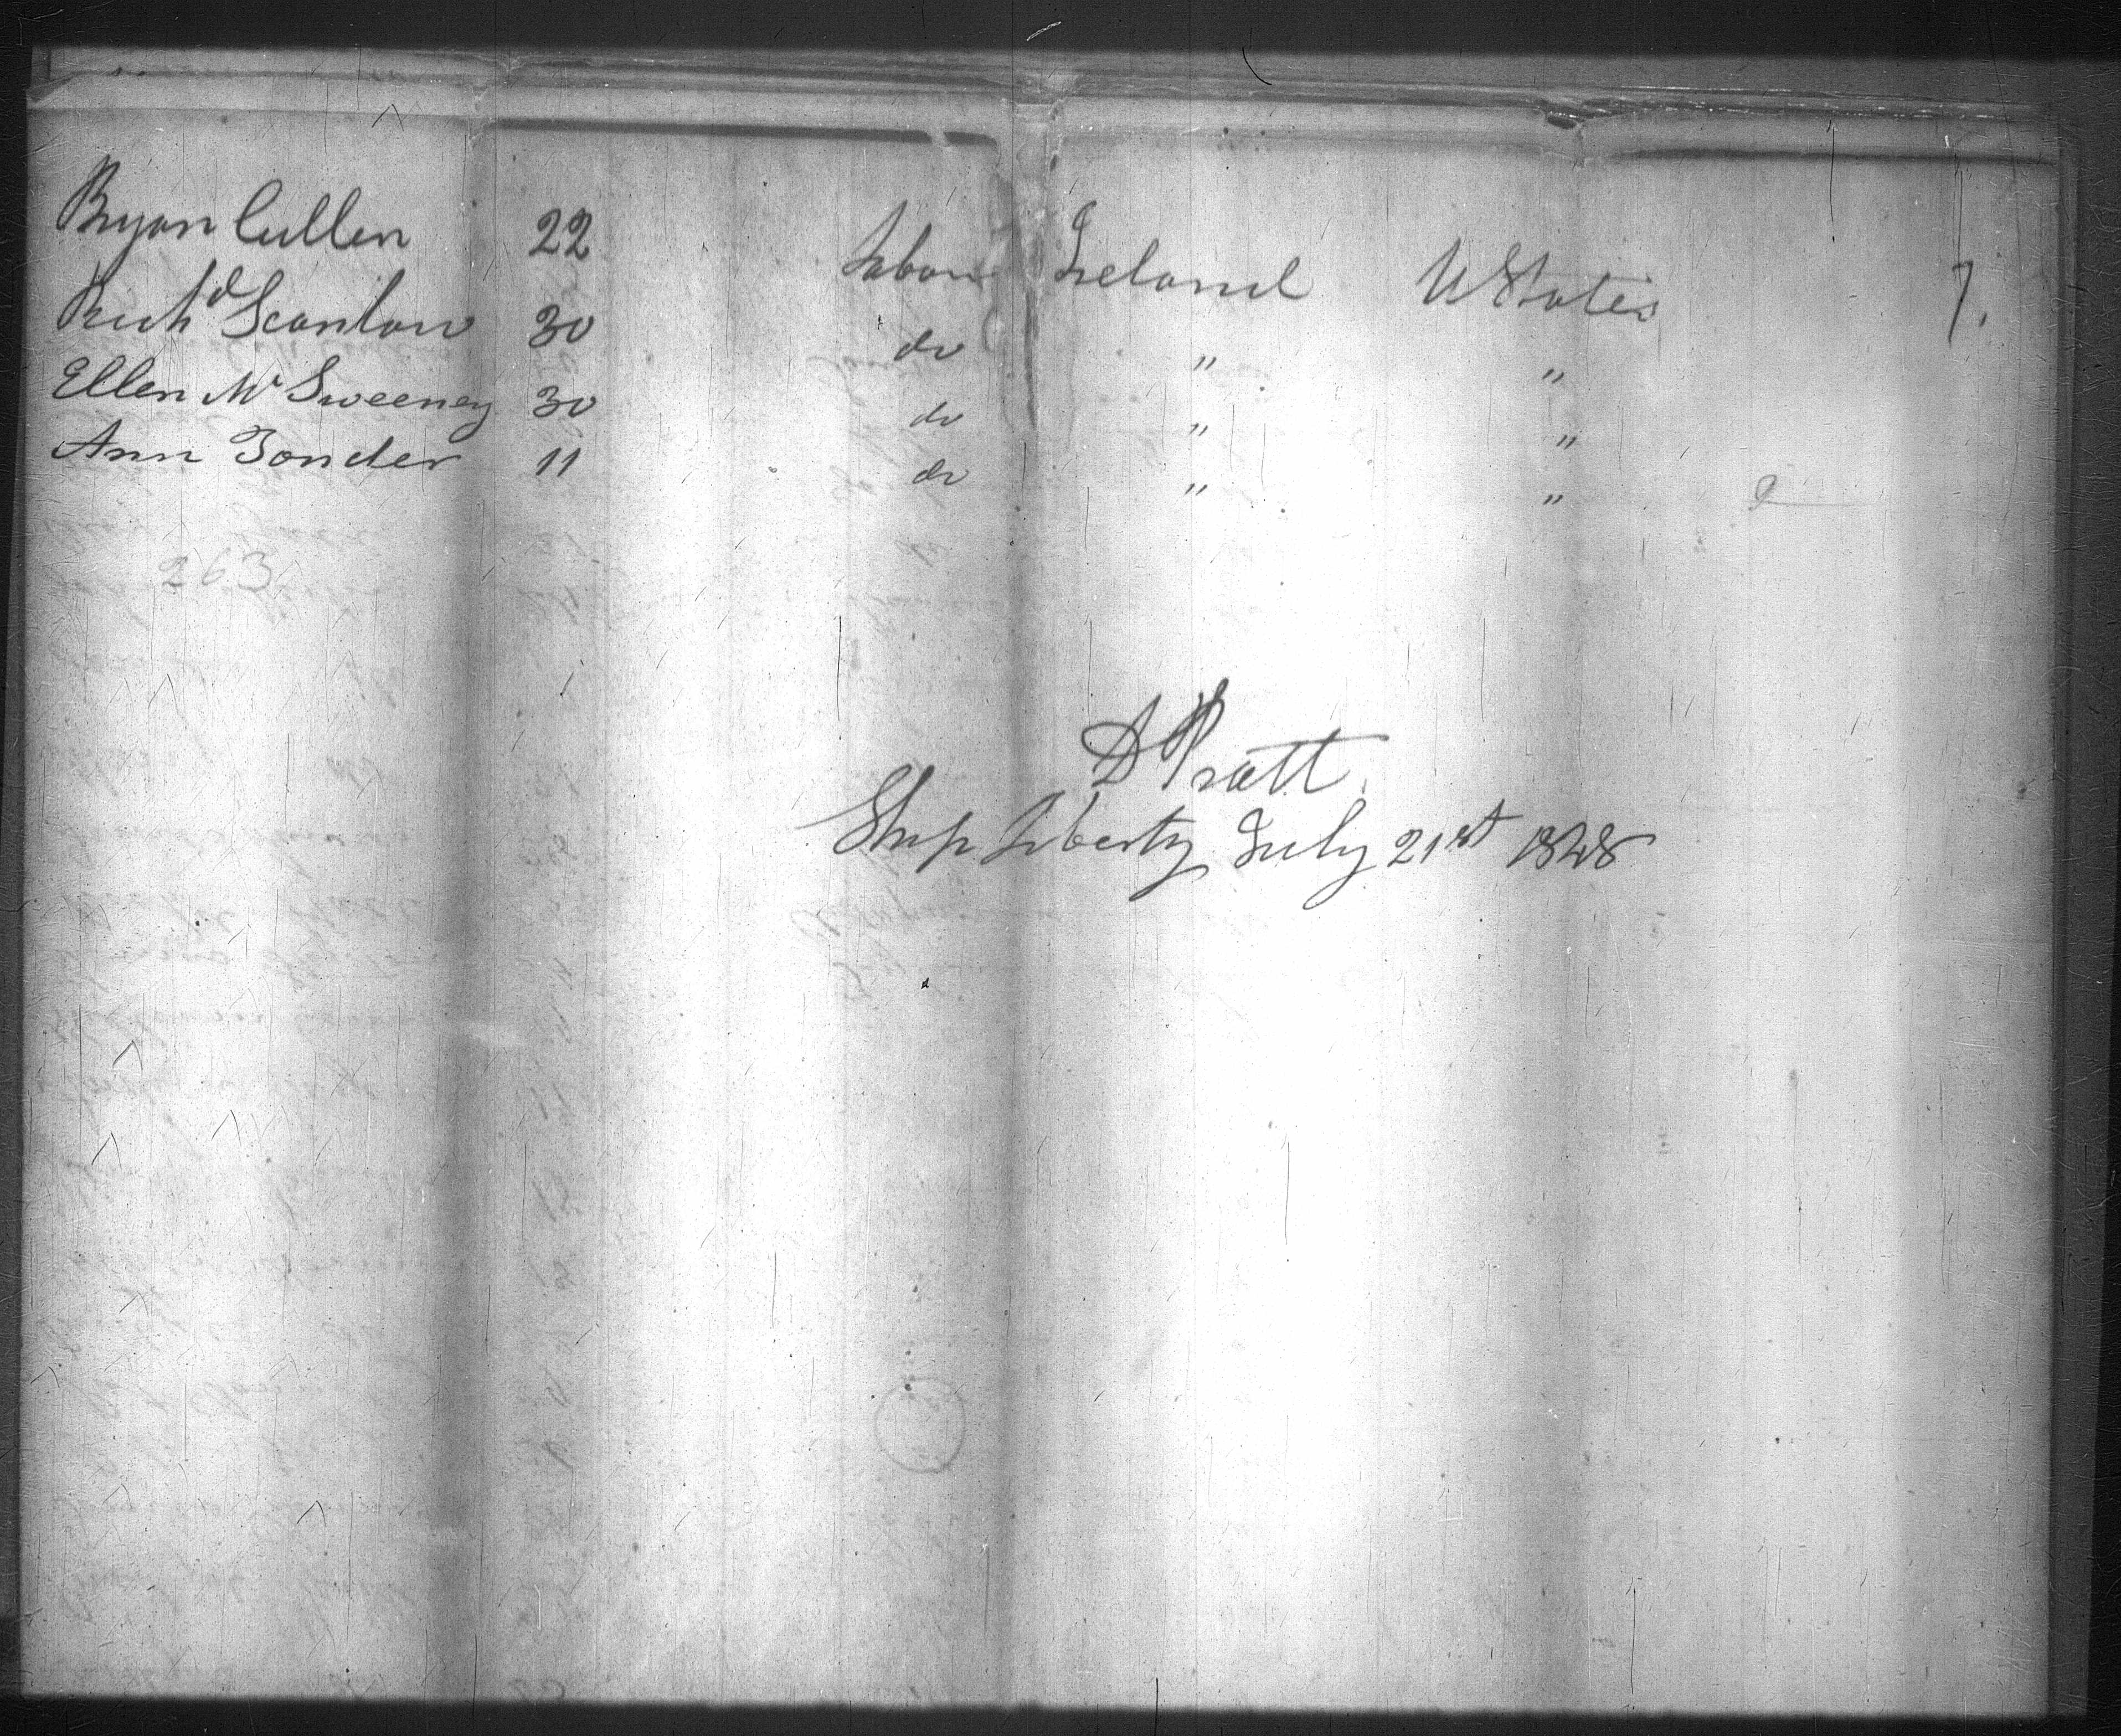 Bryan Cullen 22 Labour Ireland U States 7.
Richd Scanlan 30 do " "
Ellen Mc Sweeney 30 do " "
Ann Tonder 11 do " "
263
D Pratt
Ship Liberty July 21st 1848